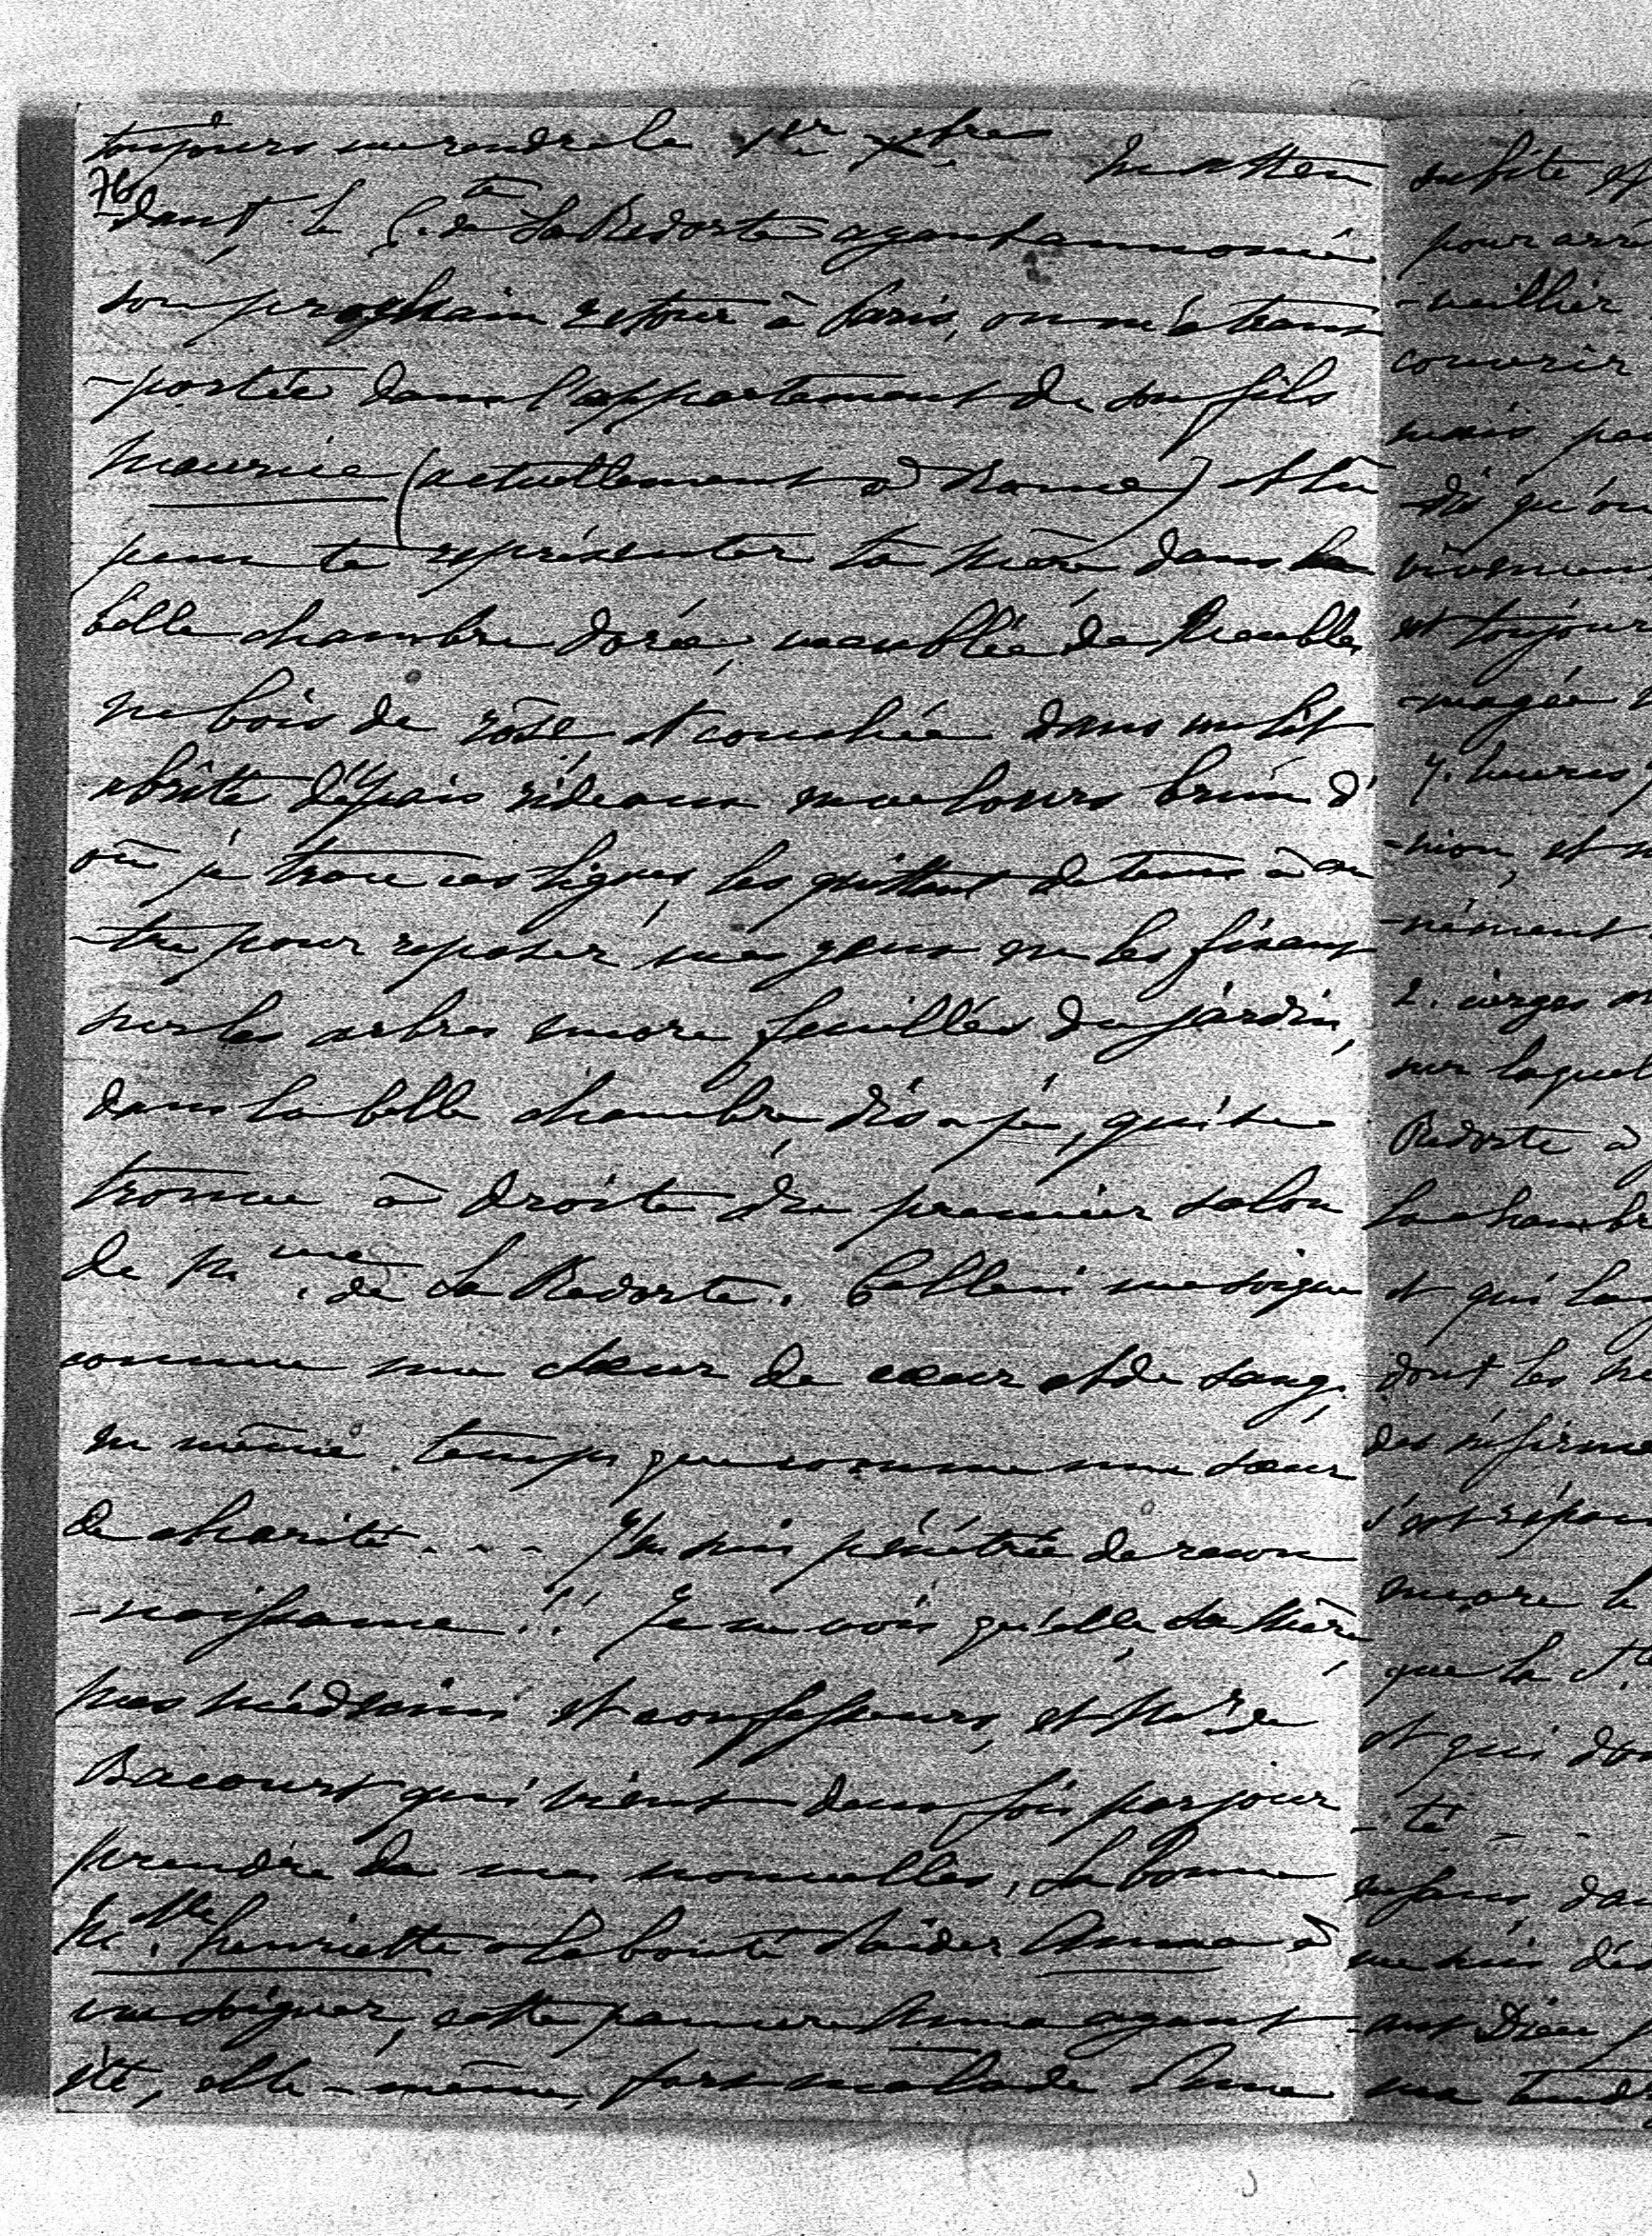 toujours me rendre le 1er Xbre En atten
76
-dant, le C.te de La Redorte ayant annoncé
son prochain retour à Paris, on m'a trans
-portée dans l'appartement de son fils
Maurice (actuellement à Rome) et tu
peux te représenter ta mère dans la
belle chambre dorée, meublée de meubles
en bois de rose et couchée dans un lit
abrité d'épais rideaux en velours brun d'
où je trace ces lignes, les quittant de tems à au
-tre pour reposer mes yeux en les fixant
sur les arbres encore feuillés du jardin,
dans la belle chambre dis-je, qui se
trouve à droite du premier salon
de M.me de La Redorte. Celle ci me soigne
comme une sœur de cœur et de sang,
en même temps que comme une sœur
de charité . . . . J'en suis pénétrée de recon
-naissance !!! Je ne vois qu'elle, sa mère,
mes médecins et confesseurs, et Mr de
Bacourt qui vient deux fois par jour
prendre de mes nouvelles. La bonne
M.elle Henriette a la bonté d'aider Anna à
me soigner, cette pauvre Anna ayant
été, elle-même, fort malade d'une
subite
pour
-veiller
couvrir
mais
-dié qu'on
et toujours
-magée
7. heures
-nion, et
-nément
2. cierges
sur
Redorte à
la chambre
et qui
dont les
des infirme
encore le
que la
et qui
-té - -
dans
me suis
Dieu
ma